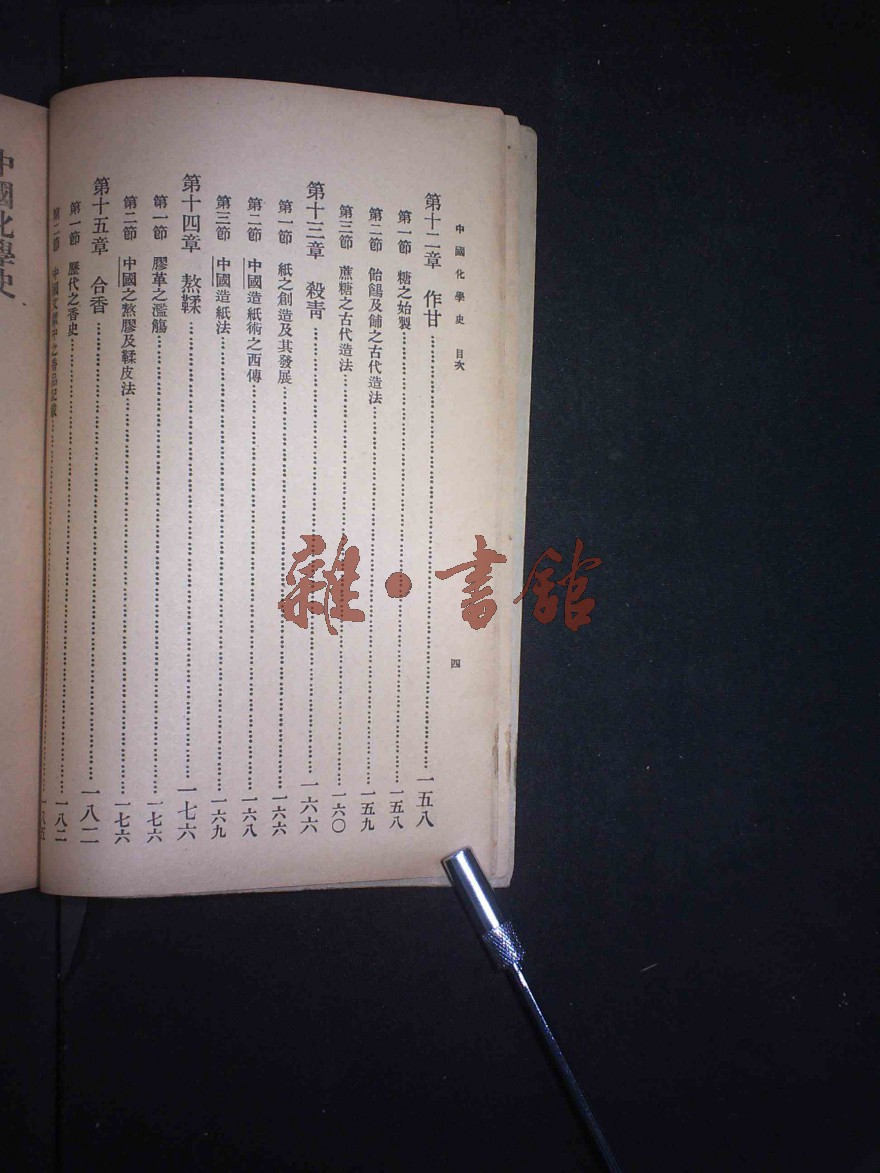 中國化學史 目次
四
第十二章 作甘⋯⋯一五八
第一節 糖之始製⋯⋯一五八
第二節 飴餳及餔之古代造法⋯⋯一五九
第三節 蔗糖之古代造法⋯⋯一六〇
第十三章 殺靑⋯⋯一六六
第一節 紙之創造及其發展⋯⋯一六六
第二節 中國造紙術之西傳⋯⋯一六八
第三節 中國造紙法⋯⋯一六九
第十四章 熬鞣⋯⋯一七六
第一節 膠革之濫觴⋯⋯一七六
第二節 中國之熬膠及鞣皮法⋯⋯一七六
第十五章 合香⋯⋯一八二
第一節 歷代之香史⋯⋯一八二
第二節 中國文獻中之香品記載⋯⋯一八五
中國化學史
雜·書館